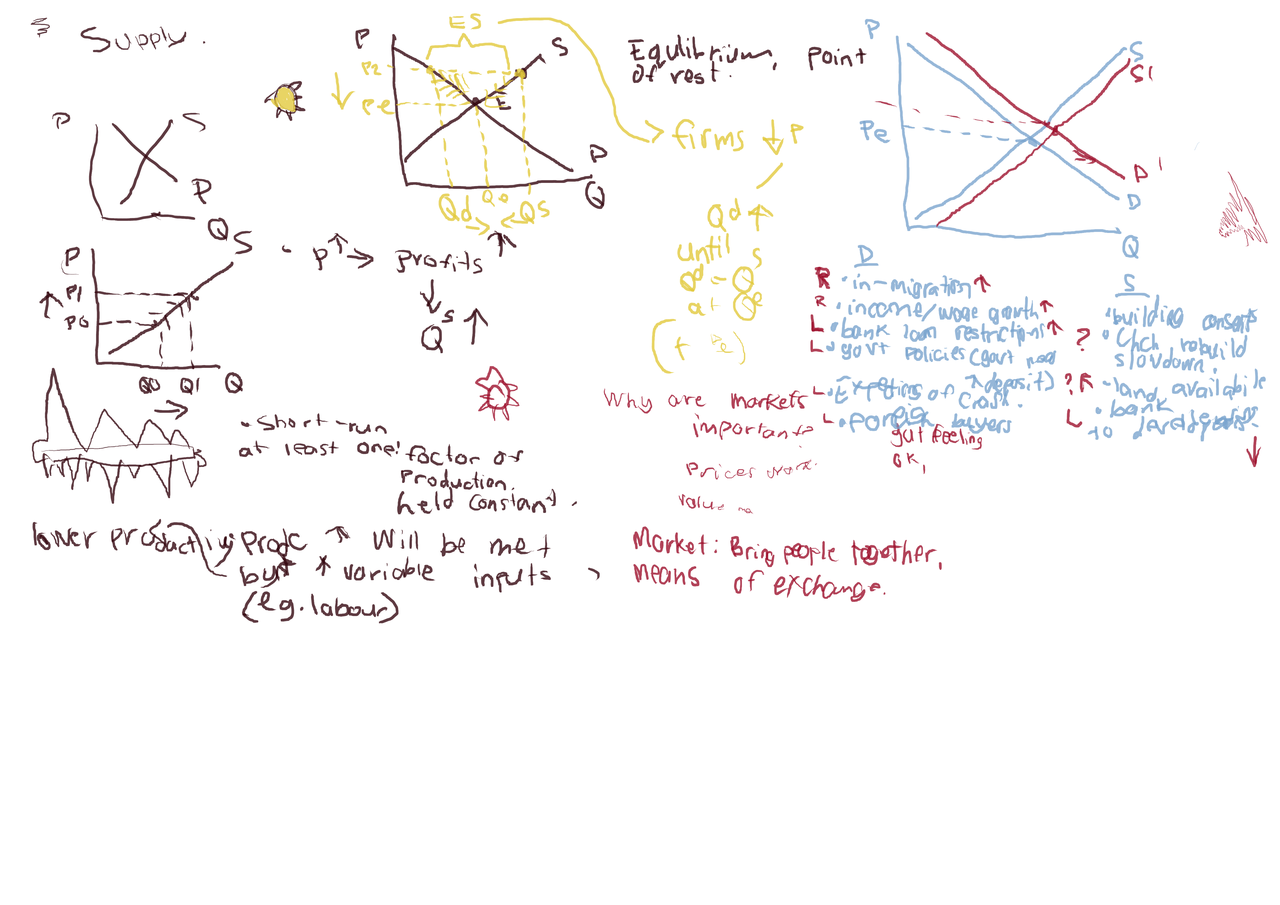 Supply.
P
S
P
Q
P
S
P1
P0
Q0 Q1 Q
• P↑ → profits ↑
↓
Qs ↑
ES
P
S
P2
Pe
E
P
Q
Qd → ← Qs
Equlibrium, point
of rest.
→ firms ↓ P
Qd ↑
until
Qd = Qs
at Qe
(+ Pe)
P
S
S'
Pe
D'
D
Q
D
R • in-migration ↑
R • income/wage growth ↑
L • bank loan restrictions ↑
L • govt policies (govt
↑ deposit)
L • of crash.
L • foreign buyers
S
• building consents
? • Chch rebuild
slowdown.
? ↑ - land availabile
L • bank
to
↓
gut feeling
ok,
• Short-run
at least one! factor of
production.
held constant.
lower productivity
Prodc ↑ will be met
but * variable inputs
(eg. labour)
Why are markets
important?
Prices work.
value
Market: Bring people together,
means of exchange.